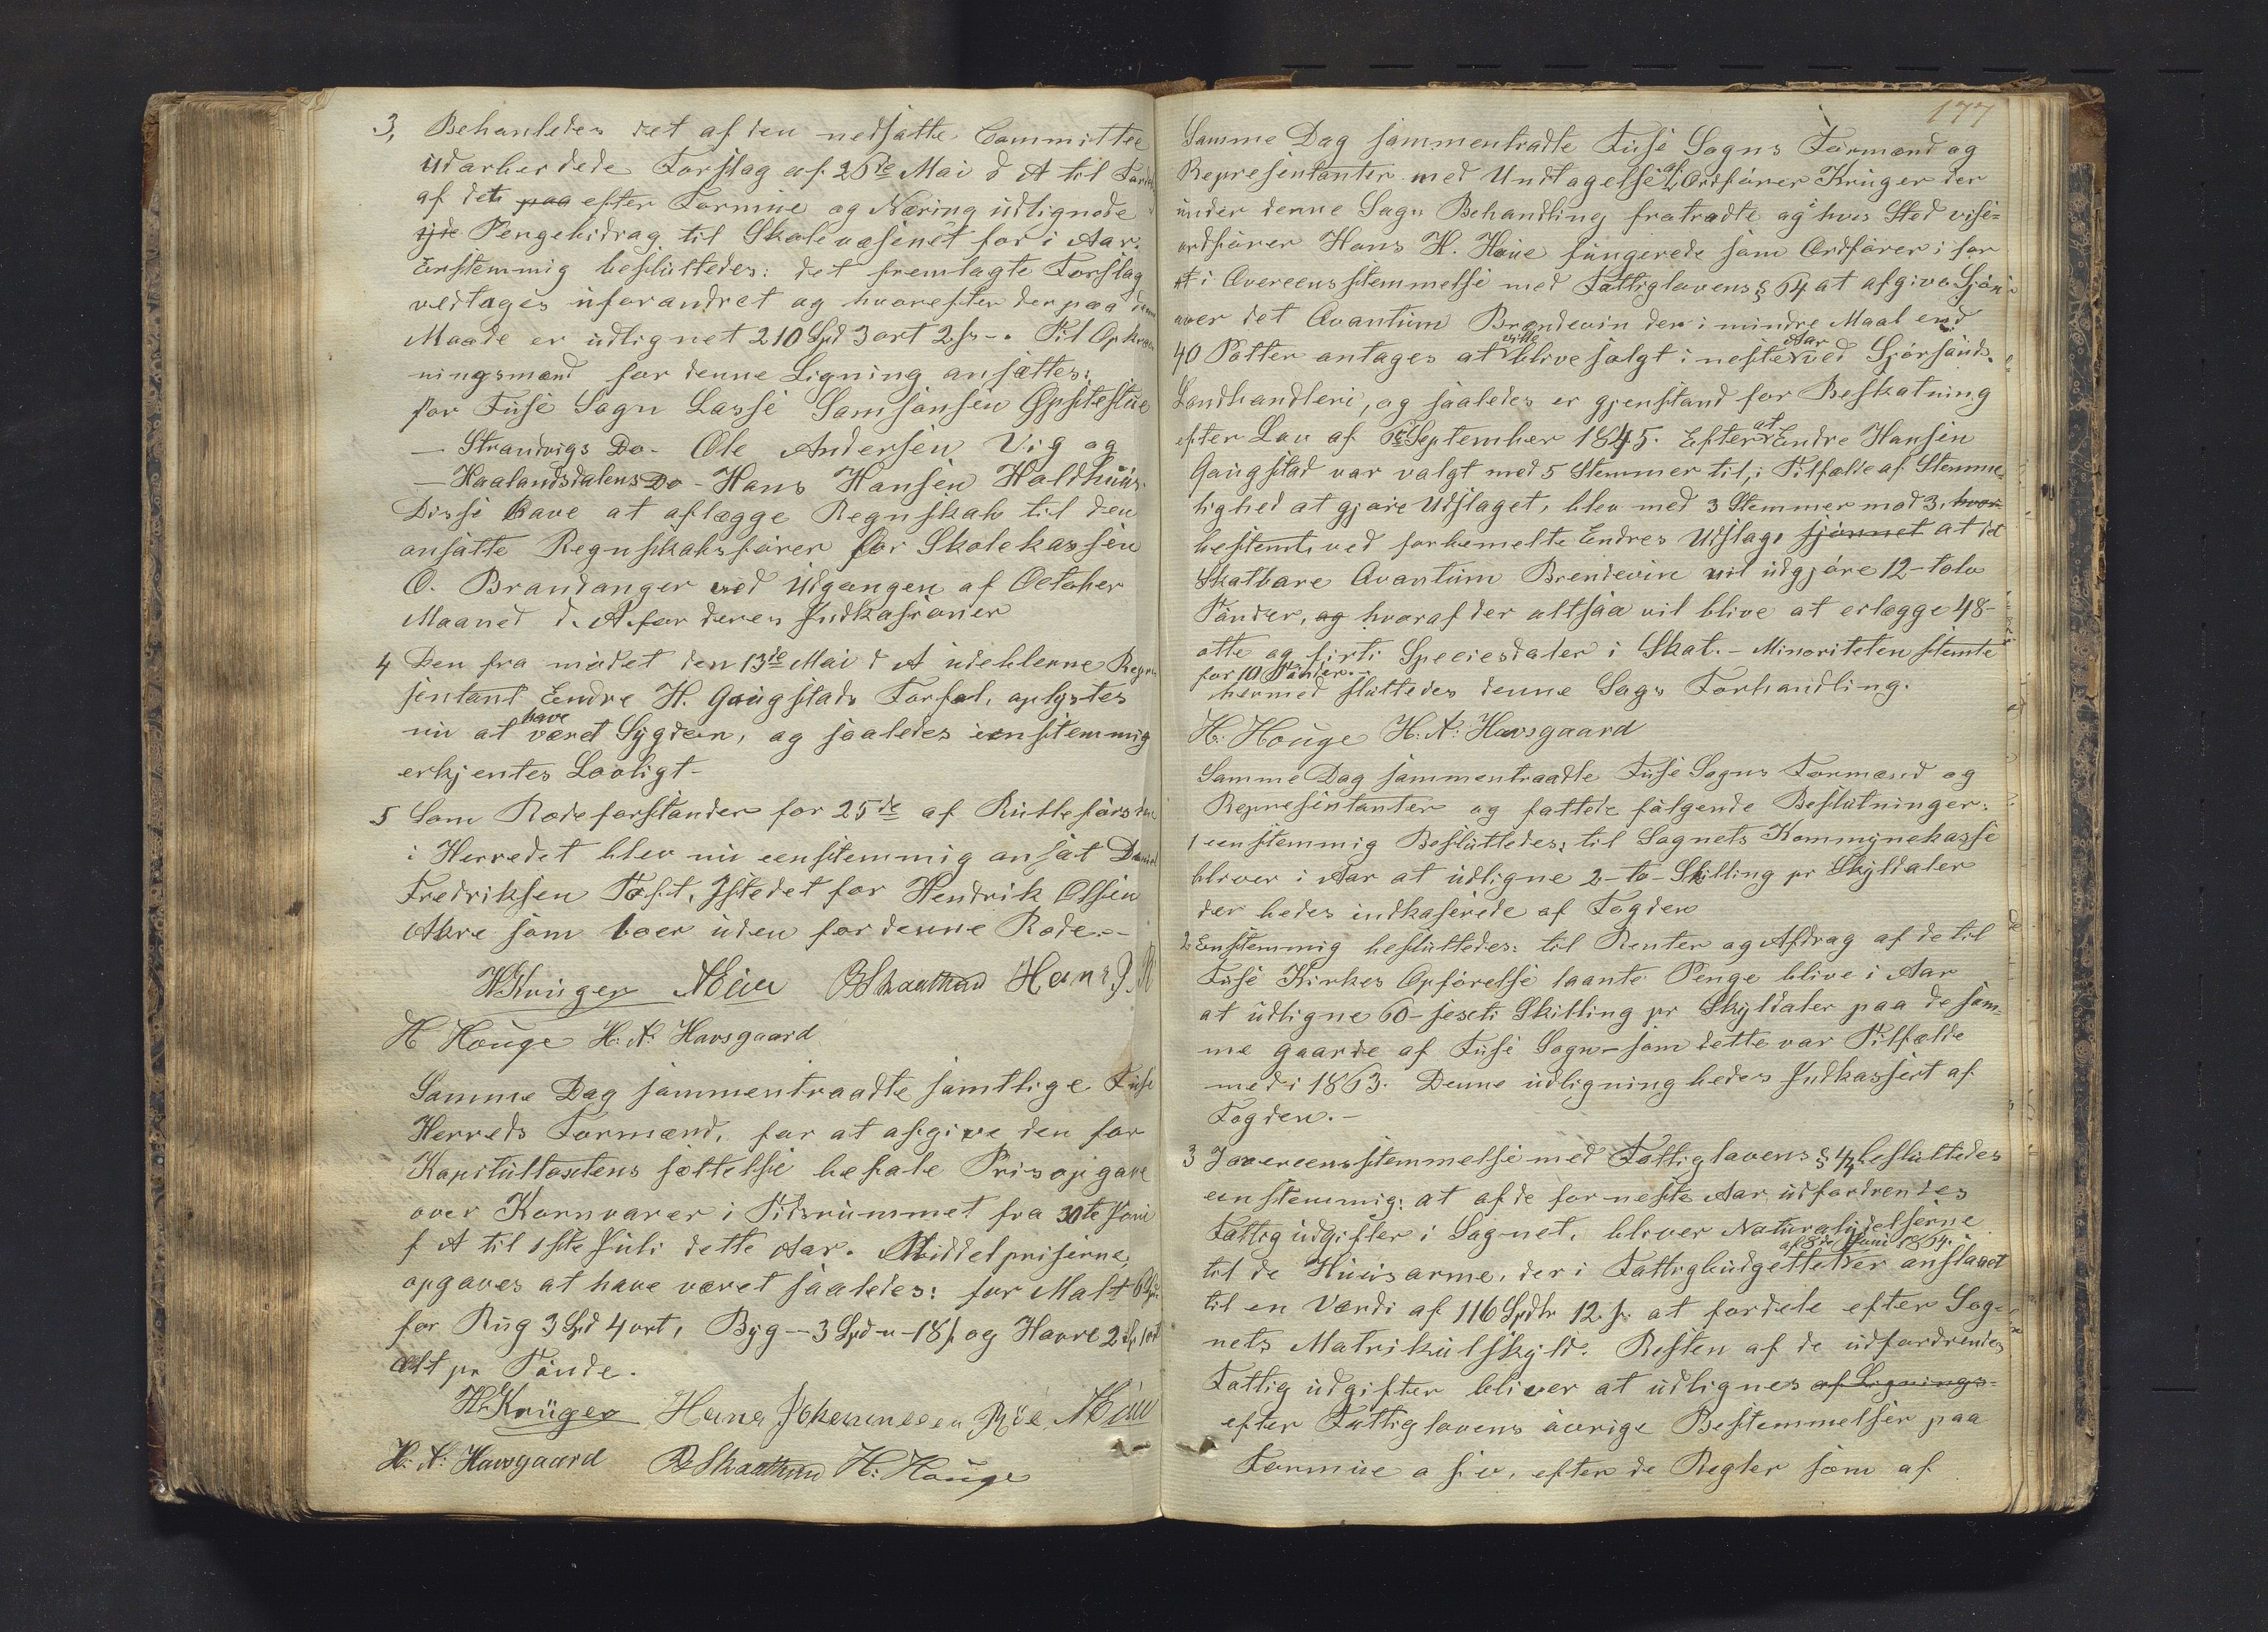 3, Behanledes det af den nedsatte Committee
udarbeidede Forslag af 26de Mai d A til
af det paa efter Formue og Næring udlignede
Pengebidrag til Skolevæsenet for i Aar.
Enstemmig besluttedes: det fremlagte Forslag
vedtages uforandret og hvorefter der paa denne
Maade er udlignet 210 Spd 3 ort 2 s -. Til Opkræv
ningsmænd for denne Ligning ansættes:
for Fuse Sogn Lasse Samsonsen Opstestue
— Strandvigs Do - Ole Andersen Vig og
— Haalandsdalens Do - Hans Hansen Holdhuus.
Disse have at aflægge Regnskab til den
ansatte Regnskabsfører for Skolekassen
O. Brandanger ved Udgangen af October
Maaned d. A. for deres Indkasioner
4 Den fra mødet den 13de Mai d A udeblevne Repræ
sentant Endre H. Gaugstads Forfal, oplystes
nu at have været Sygdom, og saaledes eenstemmig
erkjentes Lovligt-
5 Som Rodeforstander for 25de af
i Herredet blev nu eenstemmig ansat Daniel
Fredriksen Tøsst, Istedet for Hendrik Olsen
Økre som boer uden for denne Rode.-
H Krüger NEide BSkaathun Hans J. R
H Houge H. N. Havsgaard
Samme Dag sammentraadte samtlige Fuse
Herreds Formænd, for at afgive den for
Kapitultaxtens sættelse befale Prisopgave
over Kornvarer i Tidsrummet fra 30te Juni
f A til 1ste Juli dette Aar. Middelpriserne,
opgaves at have været saaledes: for Malt
for Rug 3 Spd 4 ort, Byg — 3 Spd - 18 s og Havre 2
alt pr Tønde.
H Krüger Hans Johannesen Röe NEide
H. N. Havsgaard BSkaathun H. Houge
177
Samme Dag sammentradte Fuse Sogns Formænd og
Representanter med Undtagelse af Ordfører Krüger der
under denne Sags Behandling fratradte og i hvis Sted vise-
ordfører Hans H. Houe fungerede som Ordfører: for
at i Overeensstemmelse med Fattiglovens § 64 at afgive Sjøn
over det Qvantum Brændevin der i mindre Maal end
40 Potter antages at ville blive solgt i neste Aar ved Sjørsands
Landhandleri, og saaledes er gjenstand for Beskatning
efter Lov af 6te September 1845. Efter at Endre Hansen
Gaugstad var valgt med 5 Stemmer til, i Tilfælde af Stemme-
lighed at gjøre Udslaget, blev med 3 Stemmer mod 3, hvor
bestemt, ved forbemelte Endres Udslag, sjønnet at det
Skatbare Qvantum Brendevin vil udgjøre 12-tolv
Tønder, og hvoraf der altsaa vil blive at erlægge 48-
otte og firti Speciesdaler i Skat. - Minoriteten stemte
for 10 Tønder.-
hermed sluttedes denne Sags Forhandling.
H. Houge H. N. Havsgaard
Samme Dag sammentraadte Fuse Sogns Formænd og
Representanter og fattede følgende Beslutninger:
1 eenstemmig Besluttedes: til Sognets Kommynekasse
bliver i Aar at udligne 2-to-Skilling pr Skyldaler
der bedes indkaserede af Fogden
2 Enstemmig besluttedes: til Renter og Afdrag af de til
Fuse Kirkes Opførelse laante Penge blive i Aar
at udligne 60-sexti Skilling pr Skyldaler paa de sam-
me gaarde af Fuse Sogn - som dette var Tilfælde
med i 1863. Denne udligning bedes Indkassert af
Fogden.-
3 I overeensstemmelse med Fattiglovens § 47, besluttedes
eenstemmig: at af de for neste Aar udfordrendes
Fattigudgifter i Sognet, bliver Naturalydelserne
til de Huusarme, der i Fattigbudgettet af 8de Juni 1864. er anslaaet
til en Værdi af 116 Spdlr 12 s. at fordele efter Sog-
nets Matrikulskyld. Resten af de udfordrendes
Fattigudgifter bliver at udlignes af Lignings-
efter Fattiglovens øvrige Bestemmelser paa
Formue o s. v. efter de Regler som af